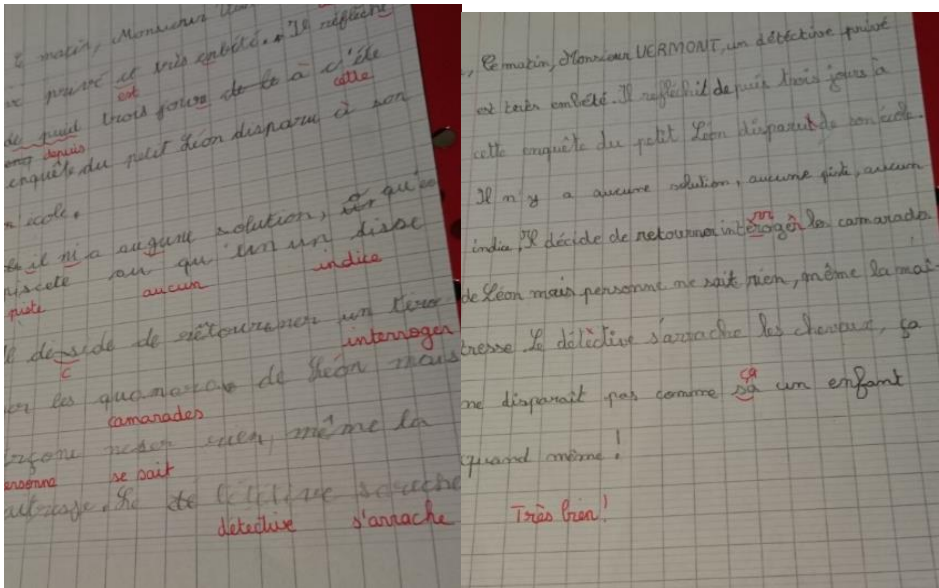 matin, Monsieur
privé et très embêté. Il réfléchi
est
de puid trois jours de te à c'éte
depuis
cette
enquête du petit Léon disparu à son
école.
il ni a augune solution, qu'
au qu'un un disse
piste
aucun
indice
de side de rêtourner un
c
interroger
les de Léon mais
camarades
rien, même la
personne
se sait
Le
détective
s'arrache
Ce matin, Monsieur VERMONT, un détéctive privé
est très embêté. Il refléchit depuis trois jours à
cette enquête du petit Léon disparut de son école.
Il n'y a aucune solution, aucune piste, aucun
rr
indice. Il décide de retourner intéroger les camarades
de Léon mais personne ne sait rien, même la maî-
tresse. Le détéctive s'arrache les cheveux, ça
ça
ne disparait pas comme sa un enfant
quand même !
Très bien !